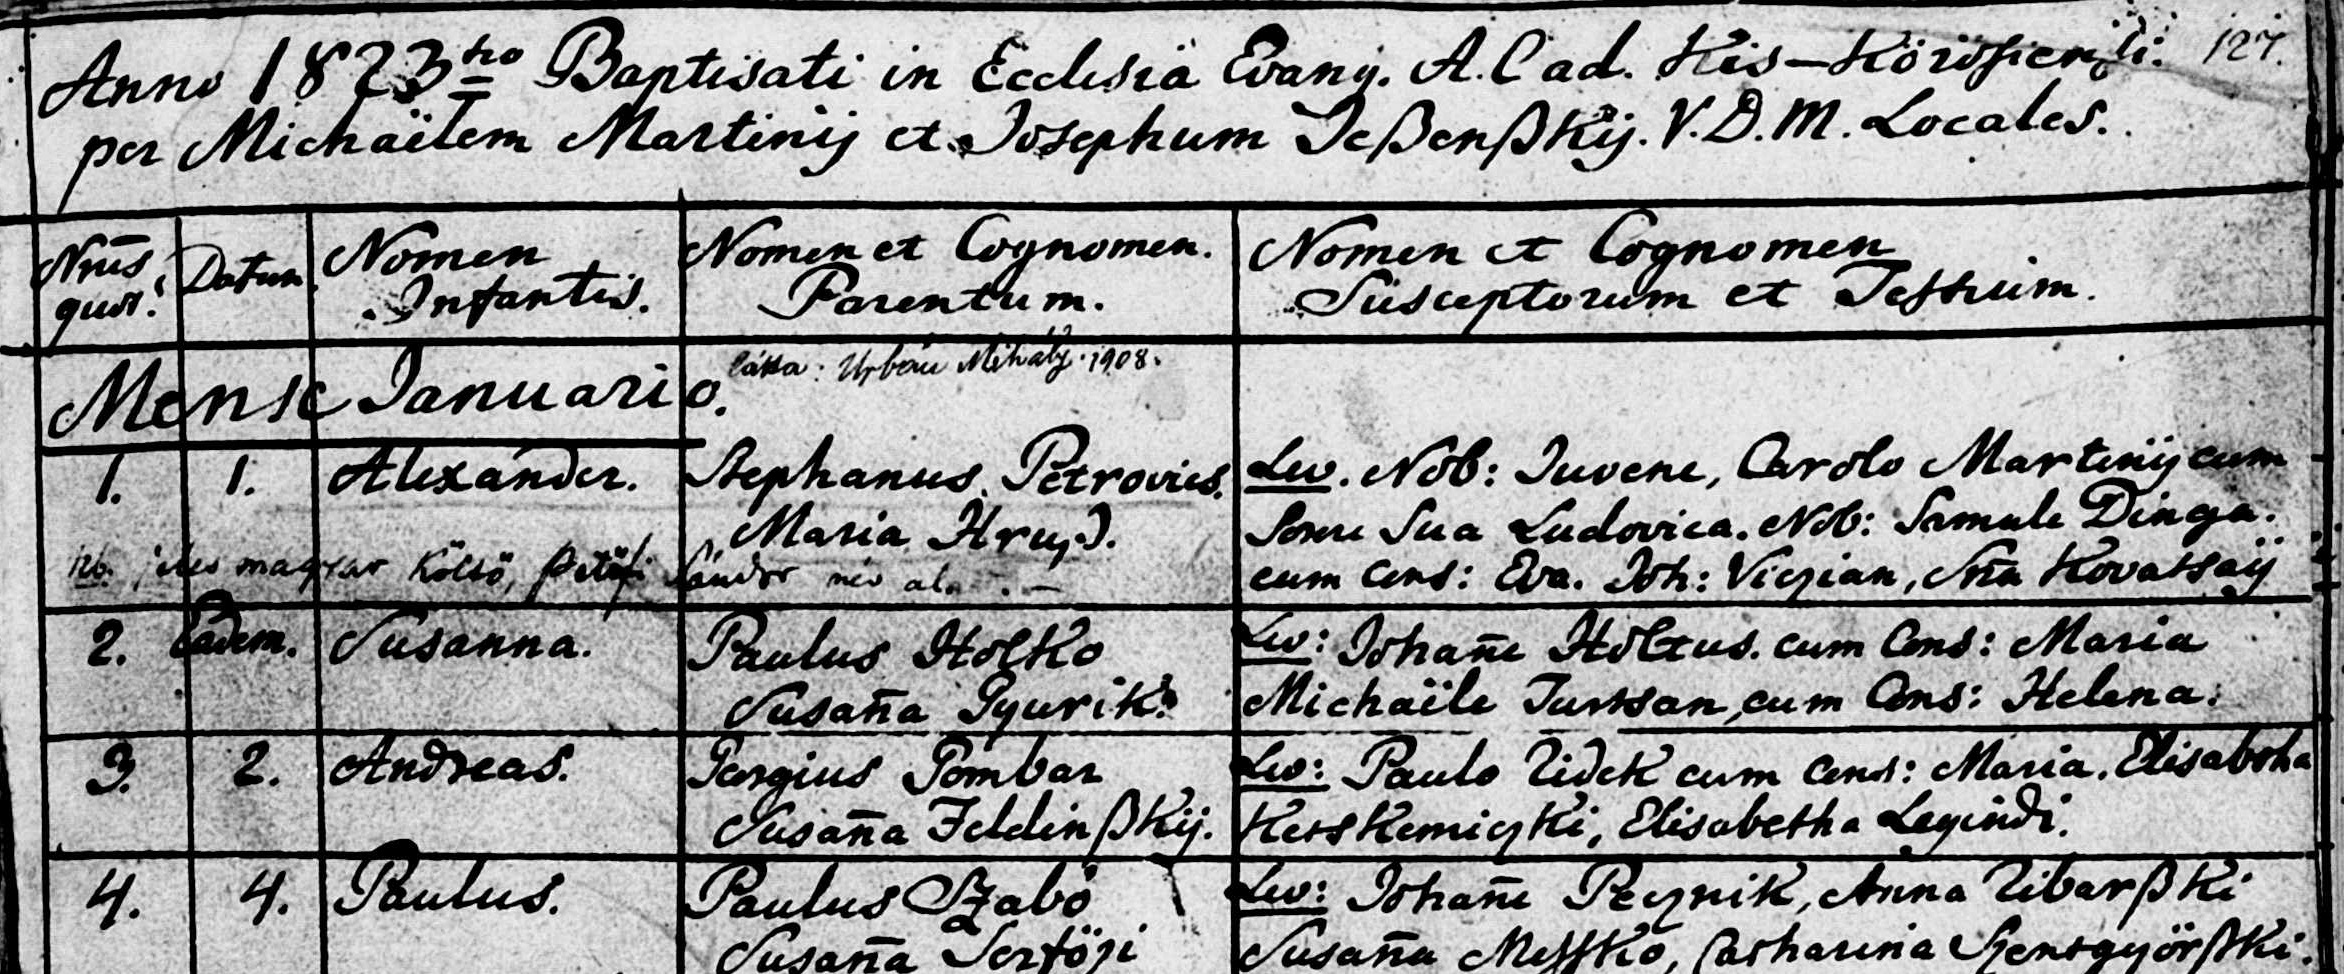 Anno 1823tio Baptisati in Ecclesiä Evang. A. C. ad. Kis-Körösiensi. 127.
per Michaëlem Martinij et Josephum Jeßenßkij. V. D. M. Locales.
Nrus Datum Nomen Infantis. Nomen et Cognomen. Parentum. Nomen et Cognomen Susceptorum et Testium.
látta: Urbán Mihály. 1908.
Mense Januario.
1. 1. Alexander. Stephanus Petrovics. Lev. Nob: Juvene, Carolo Martinij cum
Maria Hruz. Sorore Sua Ludovica. Nob: Samule Dinga.
Nb. jeles magyar költő, Petőfi Sándor név al. cum Cons: Eva. Joh: Viczian, Kovatsaÿ
2. Eadem. Susanna. Paulus Holko Lev: Johañe cum Cons: Maria
Susaña Gyurik. Michaële Turtsan, cum Cons: Helena.
3. 2. Andreas. Georgius Gombar Lev: Paulo Zidek cum Cons: Maria. Elisabetha
Susaña Feldinßkij. Ketskemiczki, Elisabetha Legindi.
4. 4. Paulus. Paulus Szabó Lev: Johañe Pecznik, Anna Uibarßki
Susaña Sertőzi Susaña Metsko, Catharina Szentgyörßki.